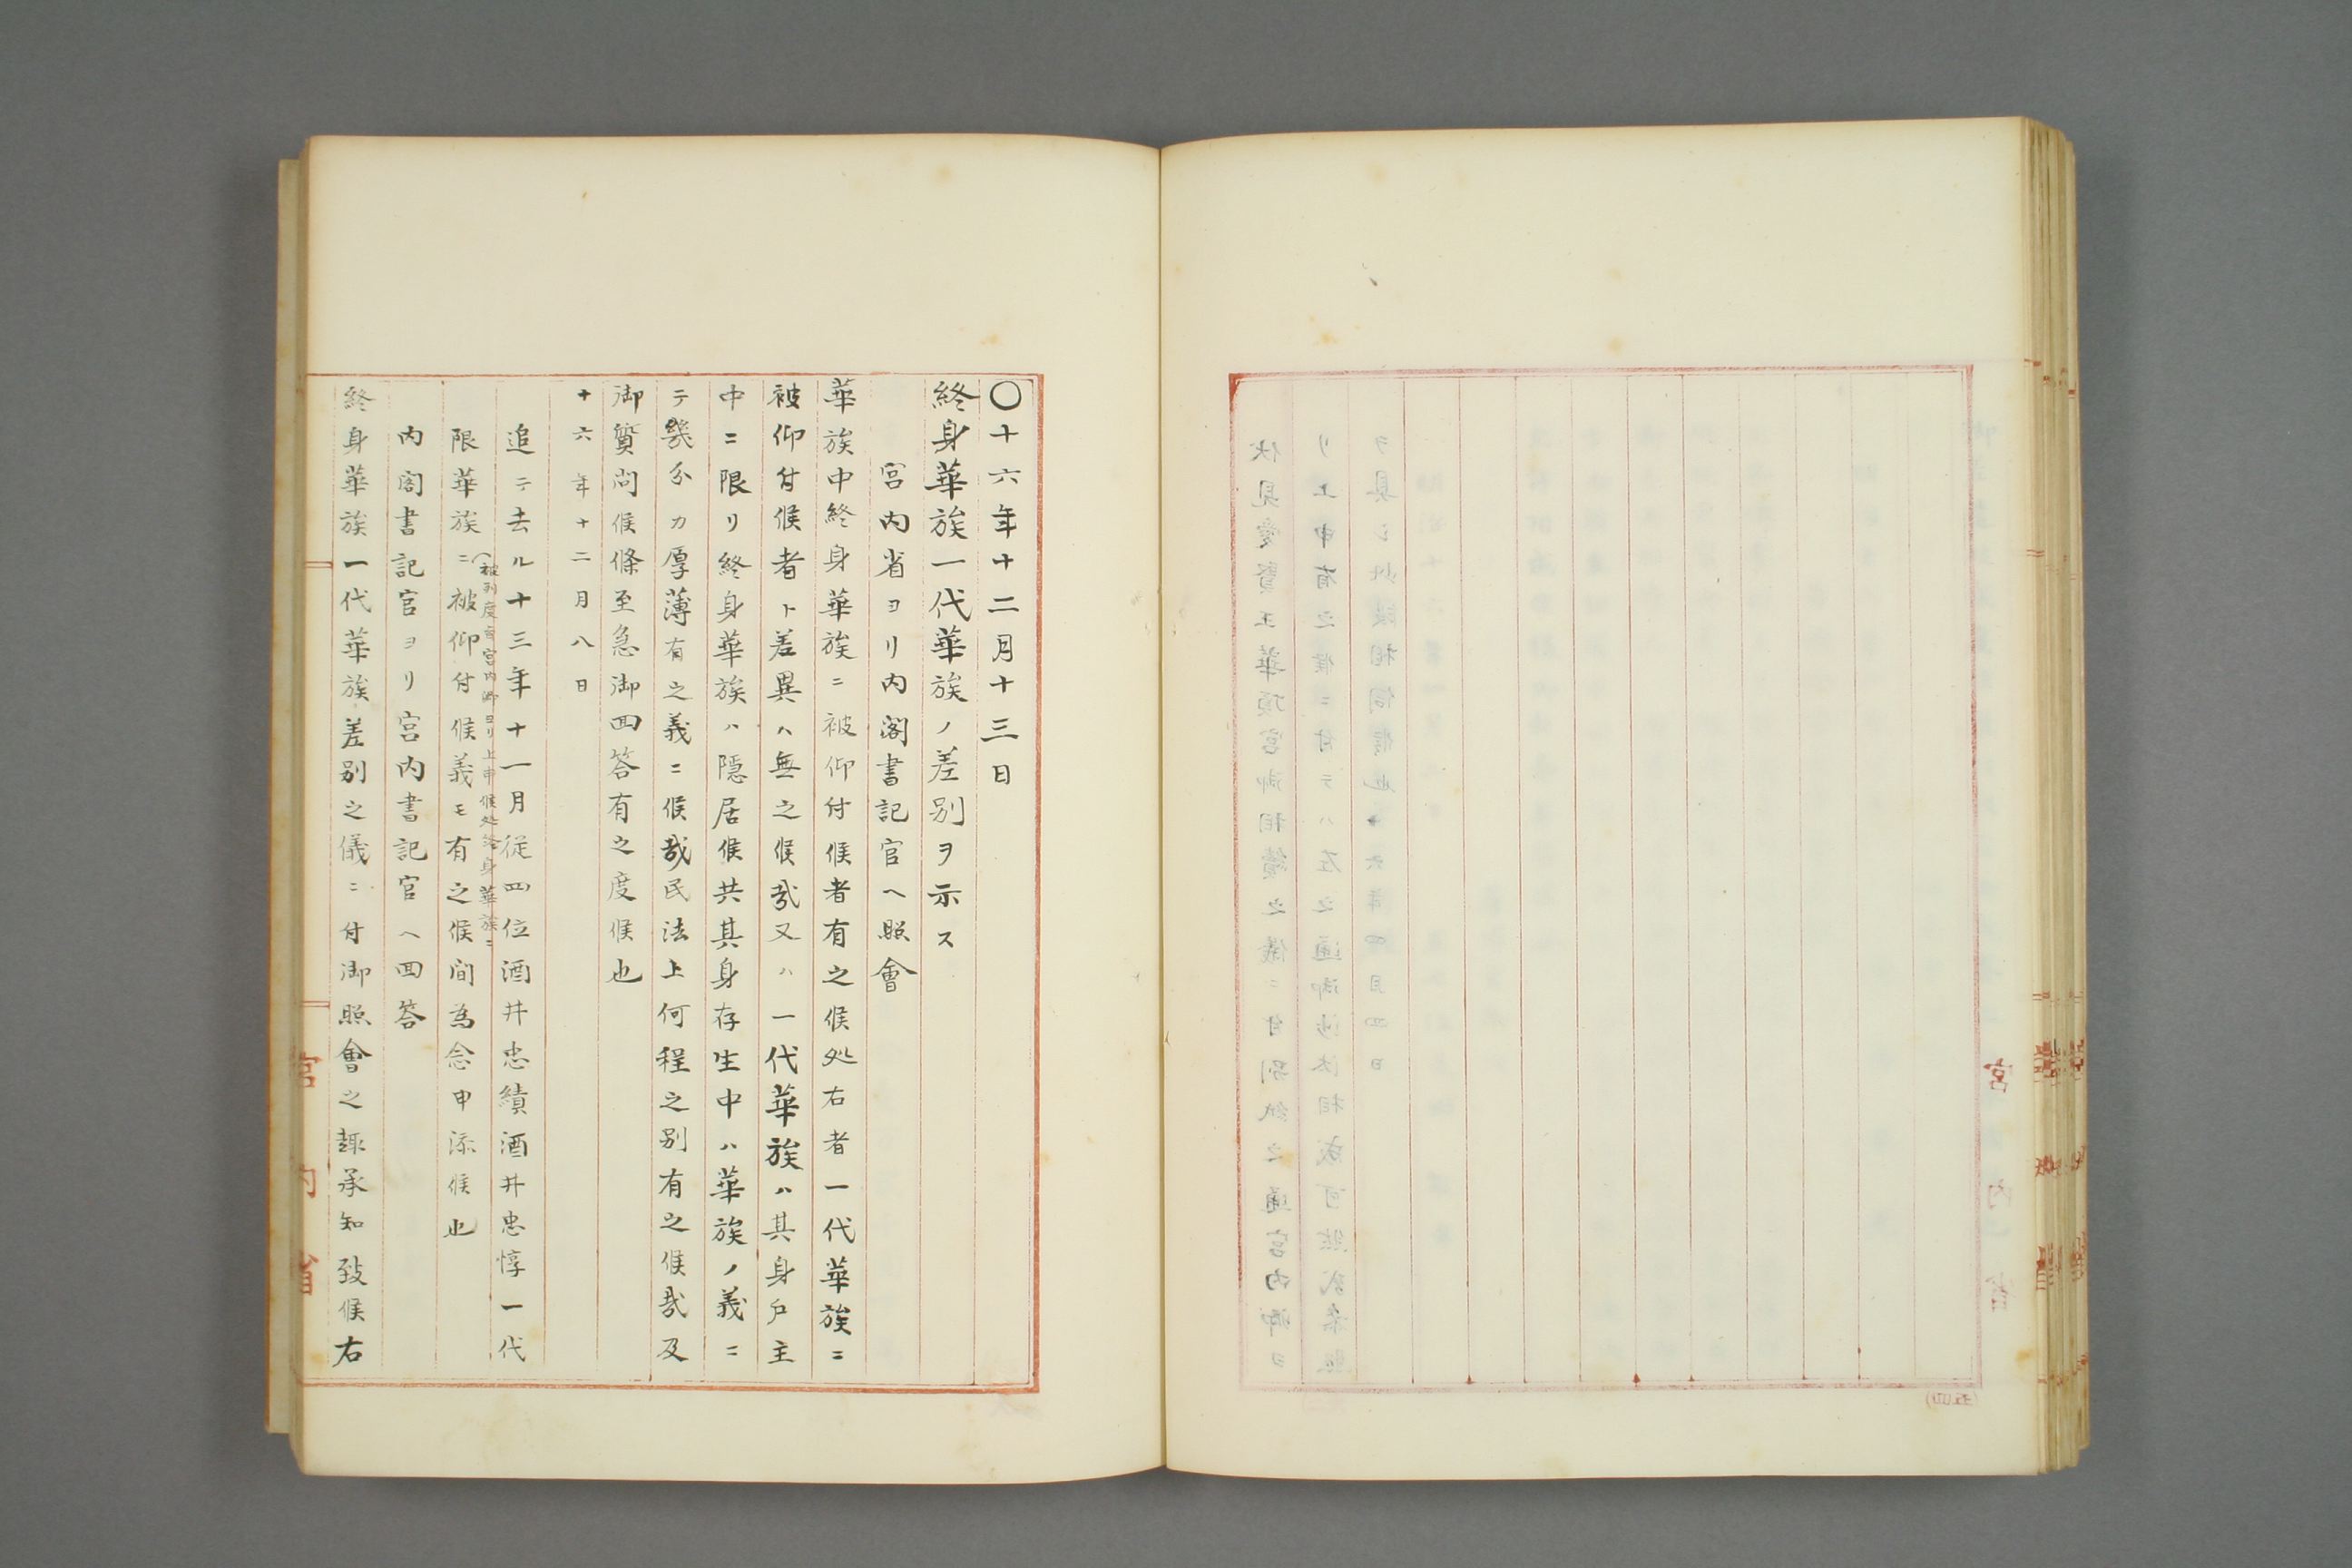 〇十六年十二月十三日
終身華族一代華族ノ差別ヲ示ス
宮内省ヨリ内閣書記官ヘ照會
華族中終身華族ニ被仰付候者有之候処右者一代華族ニ
被仰付候者ト差異ハ無之候哉又ハ一代華族ハ其身戸主
中ニ限リ終身華族ハ隠居候共其身存生中ハ華族ノ義ニ
テ幾分カ厚薄有之義ニ候哉民法上何程之別有之候哉及
御質问候條至急御回答有之度候也
十六年十二月八日
追テ去ル十三年十一月従四位酒井忠績酒井忠惇一代
宮内卿ヨリ上申候処終身華族ニ
限華族ニ被仰付候義モ有之候间為念申添候也
内閣書記官ヨリ宮内書記官ヘ回答
終身華族一代華族差別之儀ニ付御照會之趣承知致候右
宮内省
宮内省